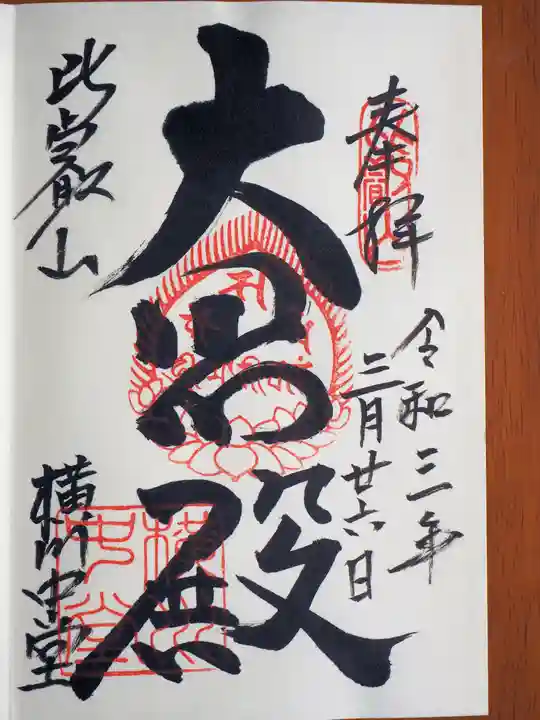 奉拝
令和三年
三月廿六日
大悲殿
比叡山
横川中堂
横川
中堂